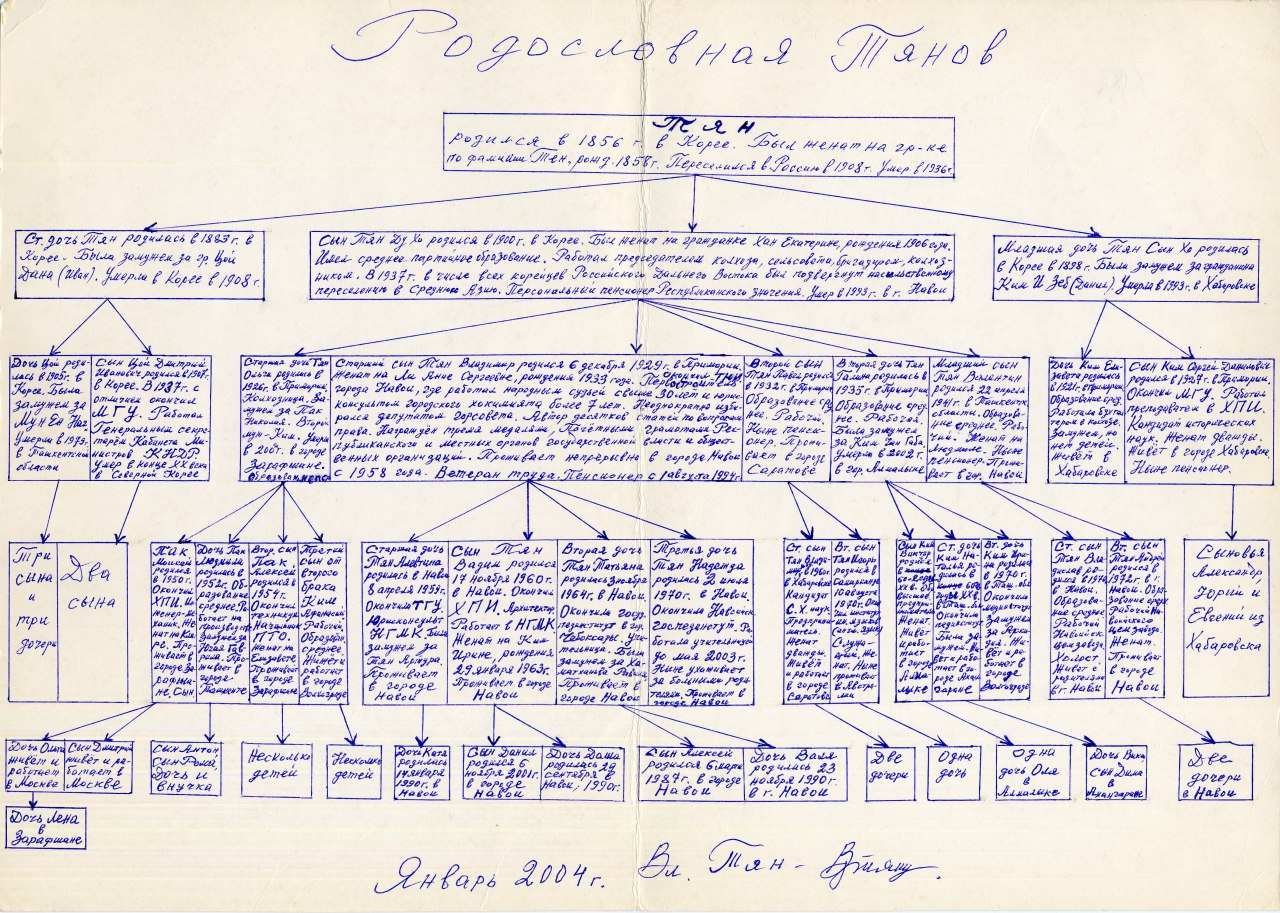 Родословная Тянов
Тян
родился в 1856 г. в Корее. Был женат на гр-ке
по фамилии Тен, рожд. 1858 г. Переселился в Россию в 1908 г. Умер в 1936 г
Ст. дочь Тян родилась в 1883 г. в
Корее. Была замужем за гр. Цой
Дана (Иван). Умерла в Корее в 1908 г.
Сын Тян Ду Хо родился в 1900 г. в Корее. Был женат на гражданке Хан Екатерине, рождения 1906 года.
Имел среднее партийное образование. Работал председателем колхоза, сельсовета, бригадиром, колхоз-
ником. В 1937 г. в числе всех корейцев Российского Дальнего Востока был подвергнут насильственному
переселению в Среднюю Азию. Персональный пенсионер Республиканского значения. Умер в 1993 г. в г. Навои
Младшая дочь Тян Сын Хо родилась
в Корее в 1898 г. Была замужем за гражданина
Ким И Зеб (Данил). Умерла в 1993 г. в Хабаровске
Дочь Цой роди-
лась в 1905 г. в
Корее. Была
замужем за
Мун Ен
Умерла в 1973 г.
в Ташкентской
области
Сын Цой Дмитрий
Иванович родился в 1907 г.
в Корее. В 1937 г. с
отличием окончил
МГУ. Работал
Генеральным секре-
тарём Кабинета Ми-
нистров КНДР
Умер в конце XX века
в Северной Корее
Старшая дочь Тян
Ольга родилась в
1926 г. в Примории,
Колхозница. За-
мужем за Пак
Николая. Второй
муж - Ким. Умерла
в 2001 г. в городе
Зарафшане.
Образование
Старший сын Тян Владимир родился 6 декабря 1929 г. в Примории.
Женат на Ли Анне Сергеевне, рождения 1933 года. Окончил ТЮИ.
Первостроитель
города Навои, где работал народным судьёй свыше 30 лет и юрис-
консультом городского хокимията более 7 лет. Неоднократно изби-
рался депутатом горсовета. Автор десятков статей по вопросам
права. Награждён тремя медалями, Почётными грамотами Рес-
публиканского и местных органов государственной власти и общест-
венных организаций. Проживает непрерывно в городе Навои
с 1958 года. Ветеран труда. Пенсионер с 1 августа 1994 г.
Второй сын
Тян Павел родился
в 1932 г. в Примории
Образование сред-
нее. Рабочий.
Ныне пенси-
онер. Прожи-
вает в городе
Саратове
Вторая дочь Тян
Галина родилась в
1935 г. в Примории,
Образование сред-
нее. Рабочая.
Была замужем
за Ким
умерла в 2002 г.
в гор. Алмалыке
Младший сын
Тян Валентин
родился 22 апреля
1941 г. в Ташкентс.
области. Образова-
ние среднее. Рабо-
чий. Женат на
Людмиле. Ныне
пенсионер. Прожи-
вает в гор. Навои
Дочь Ким Ели-
завета родилась
в 1921 г. в Приморье,
Образование сред.
Работала бухгал-
тером в колхозе.
Замужем, но
нет детей.
Живёт в
Хабаровске
Сын Ким Сергей Данилович
родился в 1927 г. в Приморье,
Окончил МГУ. Работал
преподавателем в ХПИ.
Кандидат исторических
наук. Женат дважды.
Живёт в городе Хабаровске,
Ныне пенсионер.
Три
сына
и
три
дочери
Два
сына
Пак
Моисей
родился в
1950 г.
Окончил
ХПИ. И-
женер-ме-
ханик. Же-
нат на Кла-
ре. Про-
живает в
городе За-
рафша-
не. Сын
Дочь Пак
Людмила
родилась в
1952 г. Об-
разование
среднее. Ра-
ботает на
производстве
Замужем за
Югай Гав-
рила. Про-
живает в
городе
Ташкенте
Втор. сын
Пак
Алексей
родился в
1954 г.
Окончил
техникум
Начальник
ПТО.
Женат на
Елизавете
Проживает
в городе
Зарафшане
Третий
сын от
второго
брака
Ким
Афанасий
Рабочий,
Образов.
среднее.
Живёт и
работает
в городе
Волгограде
Старшая дочь
Тян Алевтина
родилась в Навои
8 апреля 1959 г.
Окончила ТГУ.
Юрисконсульт
НГМК. Была
замужем за
Тян Артура.
Проживает
в городе
Навои
Сын Тян
Вадим родился
17 ноября 1960 г.
в Навои. Окончил
ХПИ. Архитектор.
Работает в НГМК
Женат на Ким
Ирине, рождения
29 января 1963 г.
Проживает в городе
Навои
Вторая дочь
Тян Татьяна
родилась 3 ноября
1964 г. в Навои.
Окончила госуд.
пединститут в гор.
Чебоксары. Учи-
тельница. Была
замужем за Ха-
Проживает в
городе Навои
Третья дочь
Тян Надежда
родилась 2 июля
1970 г. в Навои.
Окончила Навоийский
госпединститут. Ра-
ботала учительницей
до мая 2003 г.
Ныне ухаживает
за больными роди-
телями. Проживает в
городе Навои
Ст. сын
Тян Влади-
в Хабаровске
Кандидат
с. х. наук.
Предприни-
матель.
Женат
дважды,
Живёт
и работает
в городе
Саратове
Вт. сын
Тян Игорь
родился в
Самарканде
10 августа
1970 г.
Ныне
проживает
в Австра-
Сын Ким
Виктор
Женат.
Живёт
и рабо-
тает
в городе
Алма-
лыке
Ст. дочь
Ким На-
Была за-
мужем.
в го-
роде Анг-
Вт. дочь
Ким
родилась
в 1970 г.
в Таш. обл.
Окончила
мединститут
Замужем
Жи-
вёт и ра-
ботает в
городе
Волгограде
Ст. сын
Тян Вла-
дислав ро-
дился в 1970 г.
в г. Навои.
Образова-
ние среднее
Рабочий
Навоийск.
цемзавода.
Холост.
Живёт с
родителями
в г. Навои
Вт. сын
Тян Андрей
родился в
1972 г. в г.
Навои. Обра-
зование среднее
Рабочий На-
воийского
цемзавода
Женат.
Проживает
в городе
Навои
Сыновья
Александр
Юрий и
Евгений из
Хабаровска
Дочь Ольга
живёт и
работает
в Москве
Сын Дмитрий
живёт и ра-
ботает в
Москве
Сын Антон
Сын Рома,
Дочь и
внучка
Несколько
детей
Несколько
детей
Дочь Катя
родилась
14 января
1990 г. в
Навои
Сын Данил
родился 6
ноября 2001 г.
в городе
Навои
Дочь Даша
родилась 29
сентября в
Навои, 1990 г.
Сын Алексей
родился 6 марта
1987 г. в городе
Навои
Дочь Валя
родилась 23
ноября 1990 г.
в г. Навои
Две
дочери
Одна
дочь
Одна
дочь Оля
в
Алмалыке
Дочь Вика
Сын Дима
в
Ахангаране
Две
дочери
в Навои
Дочь Лена
в
Зарафшане
Январь 2004 г. Вл. Тян -